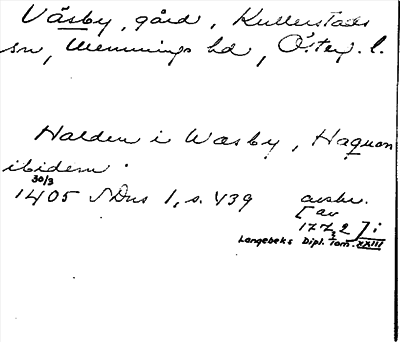 Väsby, gård, Kullerstads
sn, Memmings hd, Österg. l.
Halden i Wæsby, Haquon
ibidem.
30/3
1405 SDns 1, s. 439 avskr.
[ av
177 2 ] i
Langebeks Dipl. Tom. XXIII